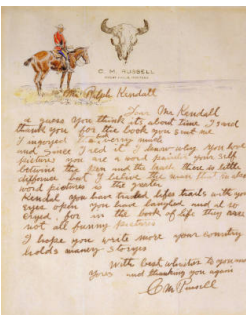 C. M. RUSSELL
Mr Ralph Kendall
Mr Kendall
I guess you think its about time I
thank you for the book you sent me
I injoyed it very much
and since I red it I know why you
pictures you are a word painter your self
betwine the pen and the brush there is little
difference but I believe the man that makes
word pictures is the greater
Kendal you have trailed lifes trails with your
eyes open you have laughed and
cryed for in the book of life they are
not all funny pictures
I hope you write more your country
holds maney storyes
With best wishes to you
yours and thanking you again
C M Russell